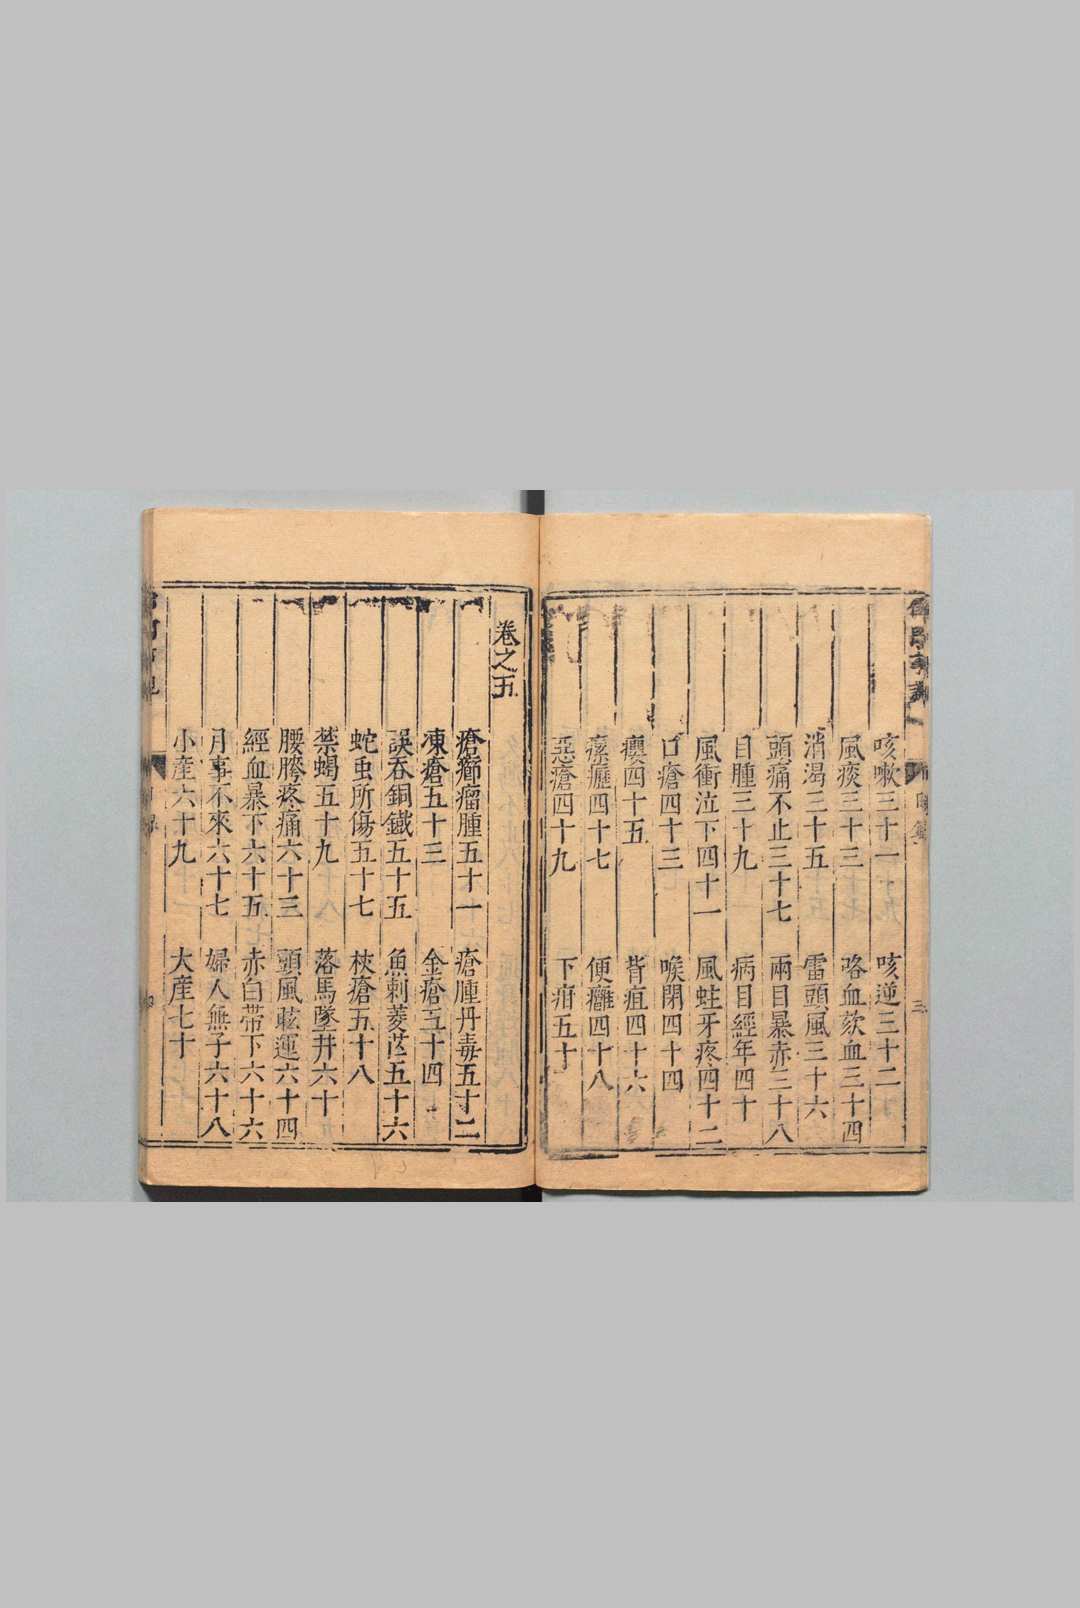 咳嗽三十一　咳逆三十二
風痰三十三　咯血欬血三十四
消渴三十五　雷頭風三十六
頭痛不止三十七　兩目暴赤三十八
目腫三十九　病目經年四十
風衝泣下四十一　風蛀牙疼四十二
口瘡四十三　喉閉四十四
癭四十五　背疽四十六
瘰癧四十七　便癰四十八
惡瘡四十九　下疳五十
卷之五
瘡癤瘤腫五十一　瘡腫丹毒五十二
凍瘡五十三　金瘡五十四
誤吞銅鐵五十五　魚刺菱芒五十六
蛇虫所傷五十七　杖瘡五十八
禁蝎五十九　落馬墜井六十
腰胯疼痛六十三　頭風眩運六十四
經血暴下六十五　赤白帶下六十六
月事不來六十七　婦人無子六十八
小產六十九　大產七十